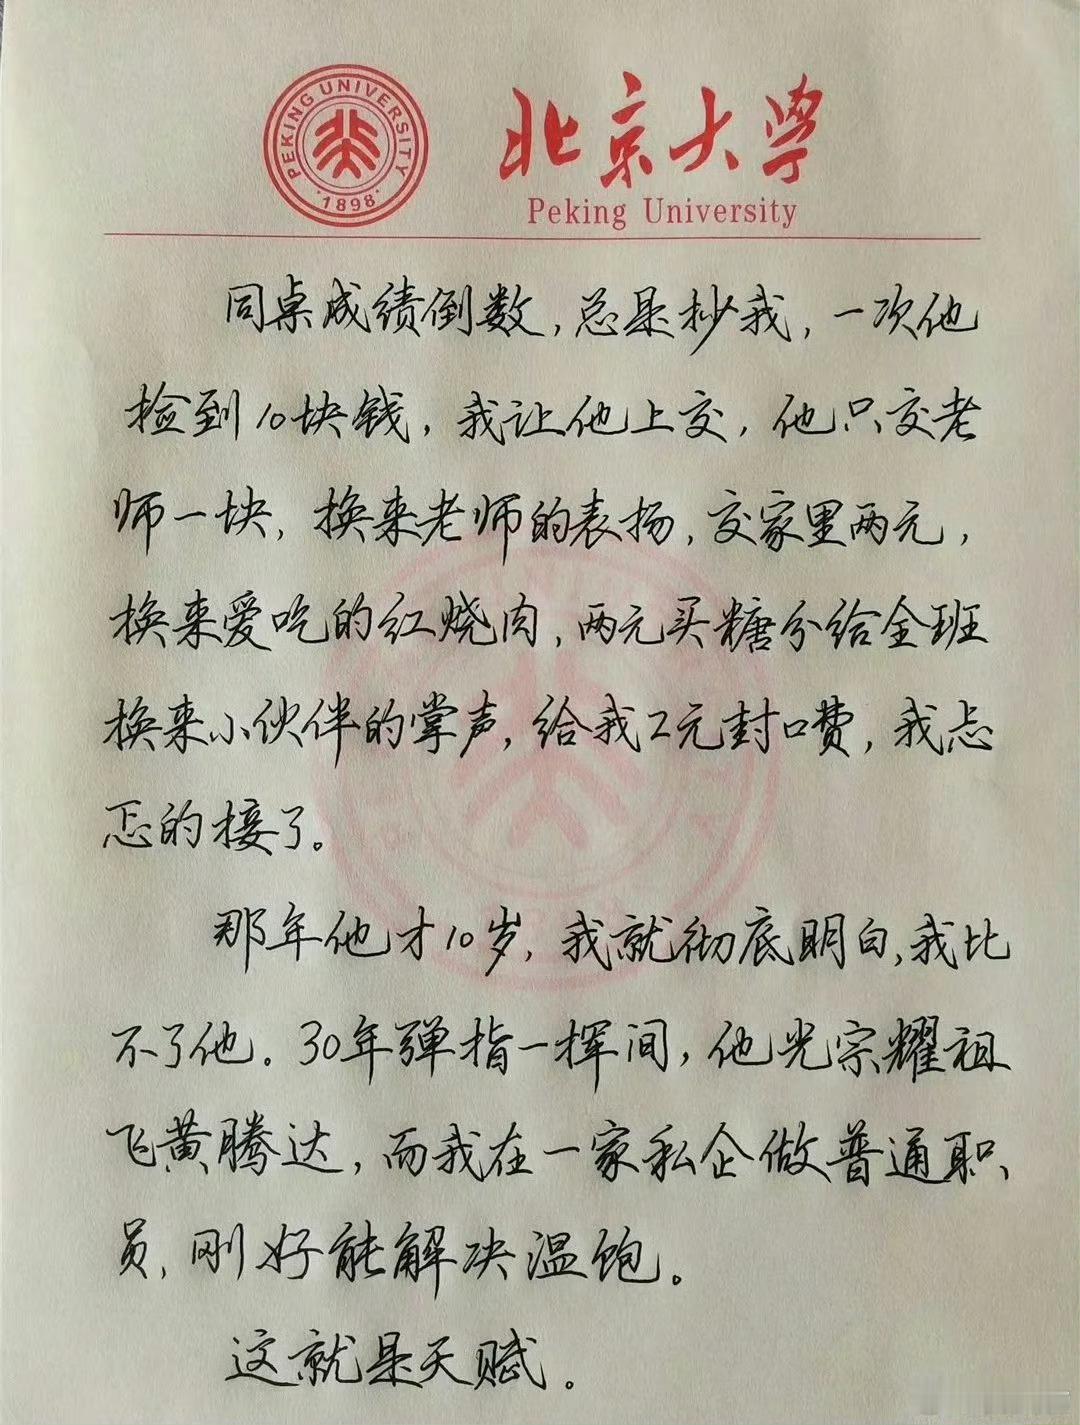 PEKING UNIVERSITY
1898
北京大学
Peking University
同桌成绩倒数,总是抄我,一次他
捡到10块钱,我让他上交,他只交老
师一块,换来老师的表扬,交家里两元,
换来爱吃的红烧肉,两元买糖分给全班
换来小伙伴的掌声,给我2元封口费,我忐
忑的接了。
那年他才10岁,我就彻底明白,我比
不了他。30年弹指一挥间,他光宗耀祖
飞黄腾达,而我在一家私企做普通职
员,刚好能解决温饱。
这就是天赋。